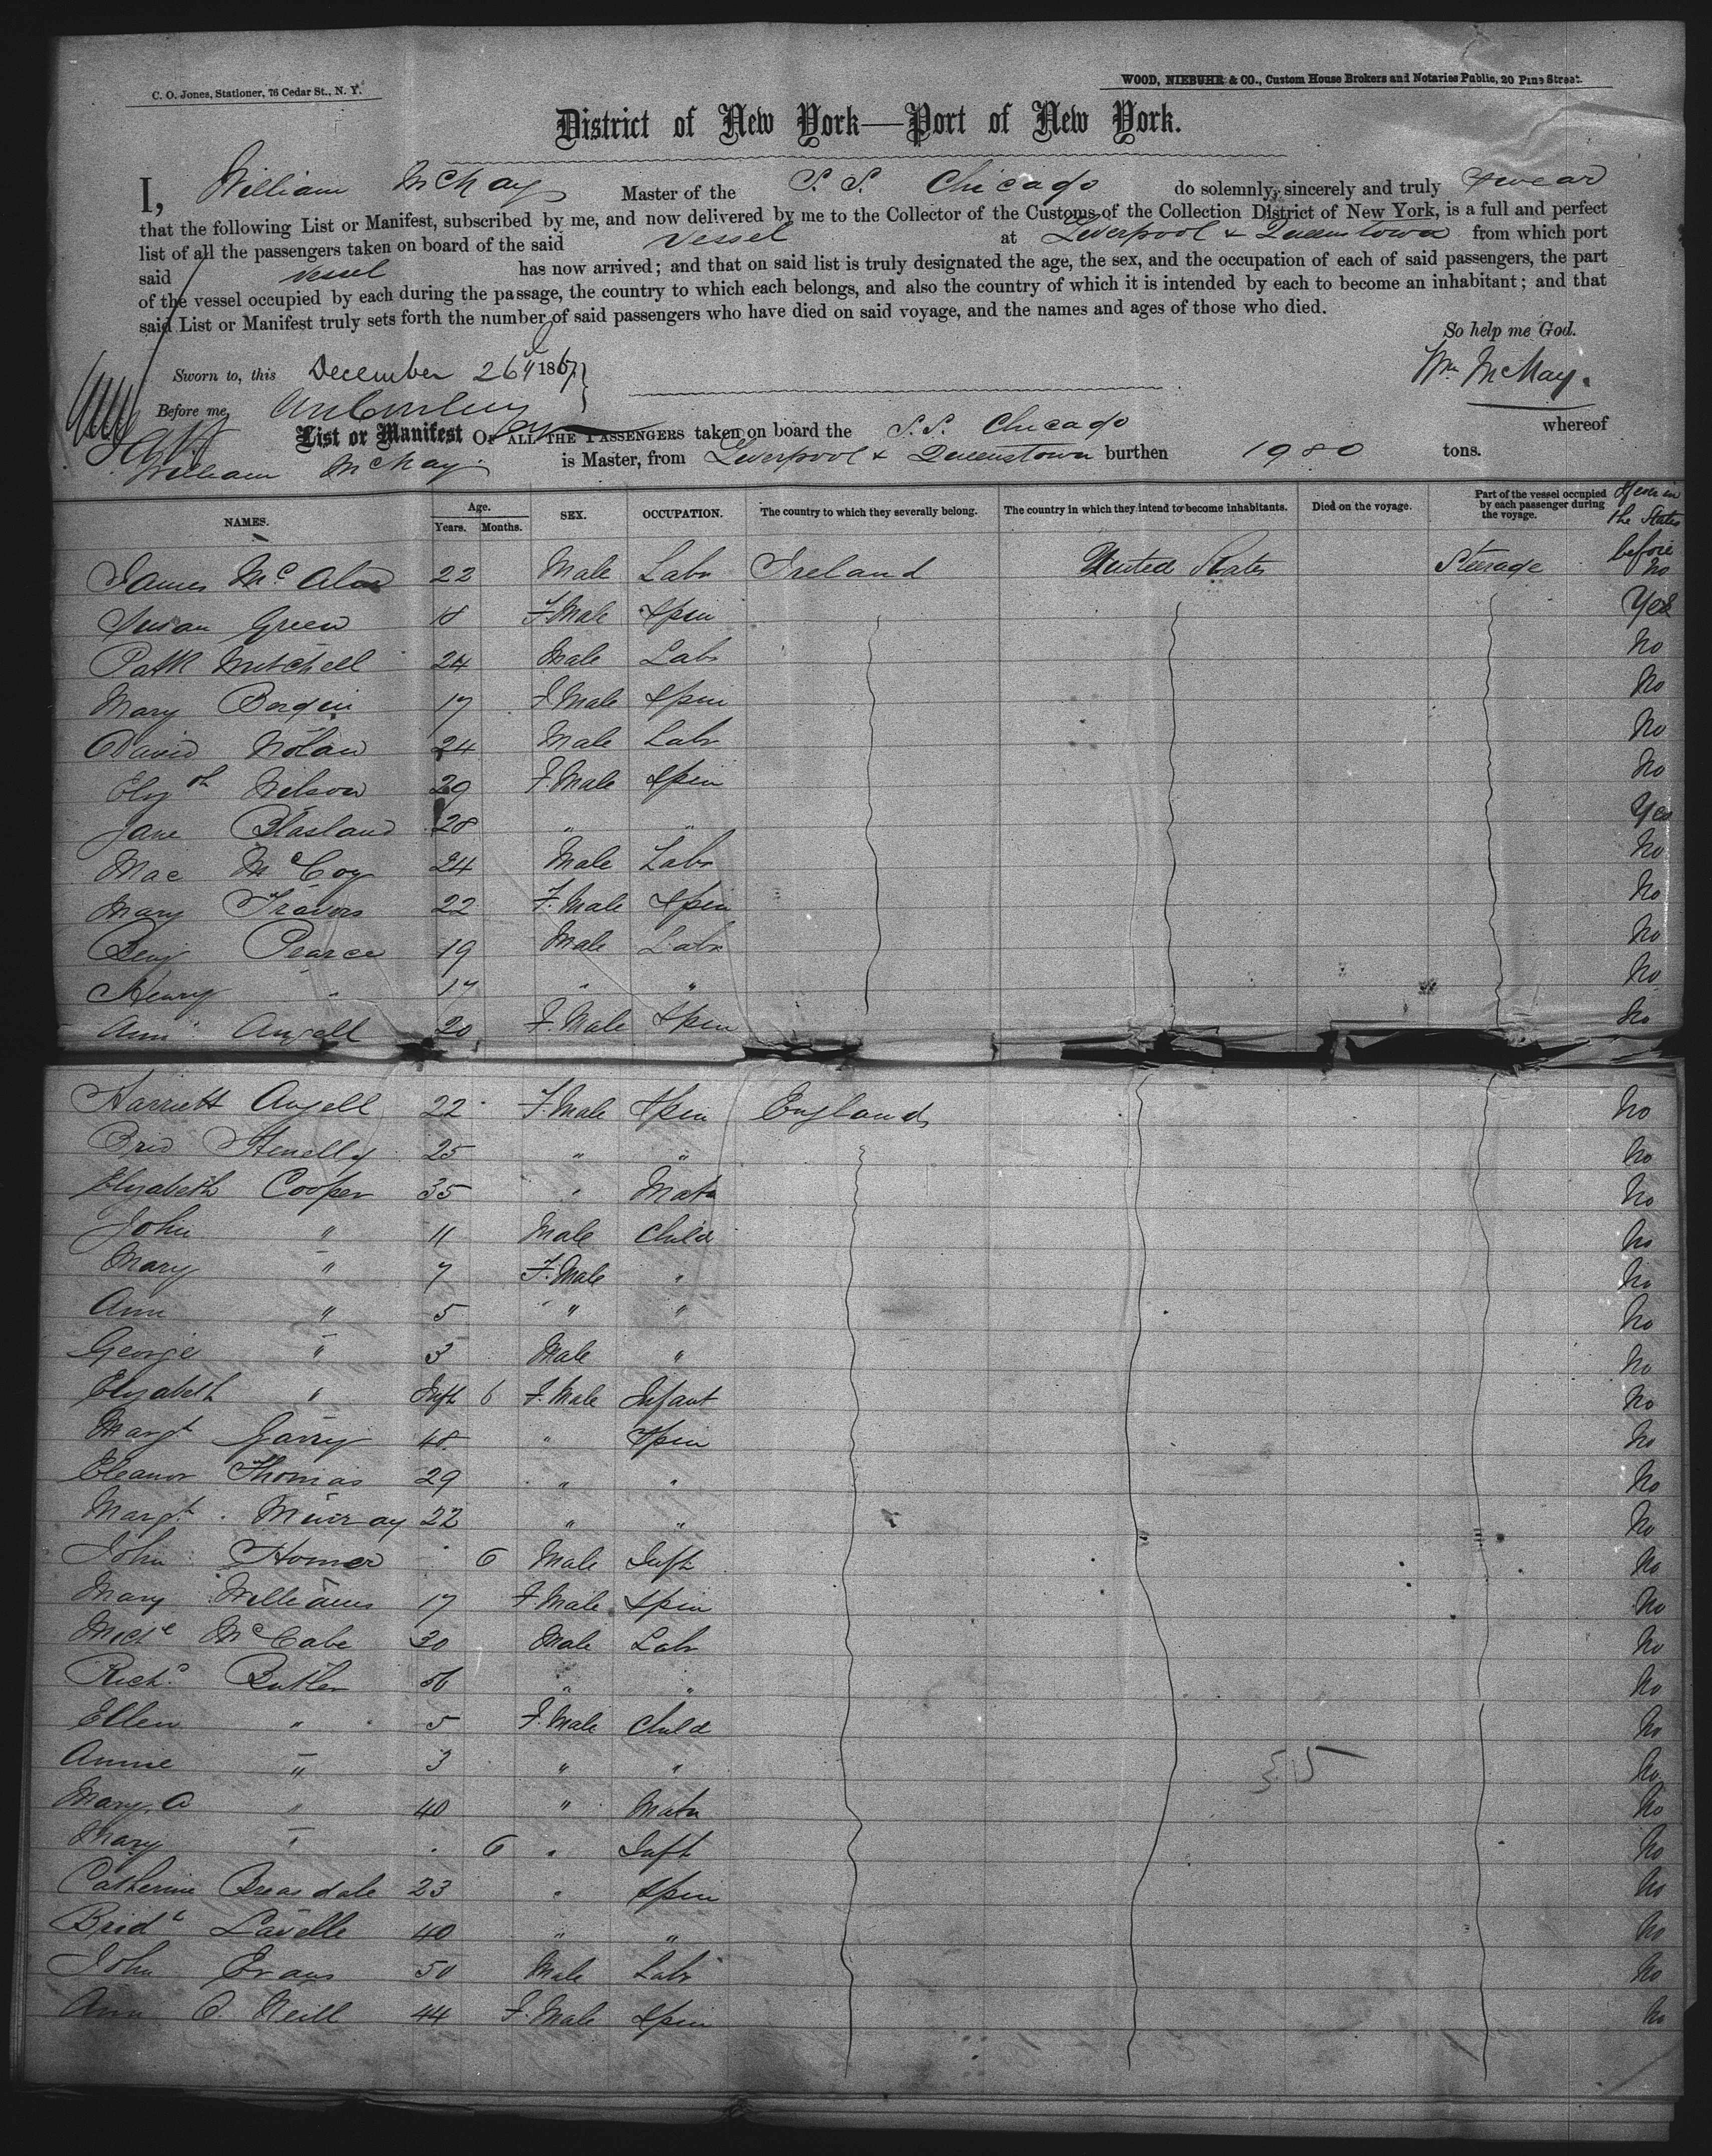 C. O. Jones, Stationer, 76 Cedar St., N. Y.
WOOD, NIEBUHR & CO., Custom House Brokers and Notaries Public, 20 Pine Street.
District of New York—Port of New York.
I, William McKay Master of the S. S. Chicago do solemnly, sincerely and truly swear
that the following List or Manifest, subscribed by me, and now delivered by me to the Collector of the Customs of the Collection District of New York, is a full and perfect
list of all the passengers taken on board of the said vessel at Liverpool & Queenstown from which port
said vessel has now arrived; and that on said list is truly designated the age, the sex, and the occupation of each of said passengers, the part
of the vessel occupied by each during the passage, the country to which each belongs, and also the country of which it is intended by each to become an inhabitant; and that
said List or Manifest truly sets forth the number of said passengers who have died on said voyage, and the names and ages of those who died.
So help me God.
Sworn to, this December 26 1867 Wm McKay.
Before me,
List or Manifest OF ALL THE PASSENGERS taken on board the S. S. Chicago whereof
William McKay is Master, from Liverpool & Queenstown burthen 1980 tons.
NAMES. Age. Years. Months. SEX. OCCUPATION. The country to which they severally belong. The country in which they intend to become inhabitants. Died on the voyage. Part of the vessel occupied by each passenger during the voyage. If ever in the States before
James Mc 22 Male Labr Ireland United States Steerage No
Susan Green 18 F.Male Spin Yes
Patk Mitchell 24 Male Labr No
Mary 17 F.Male Spin No
David Nolan 24 Male Labr No
Elizth Wilson 29 F.Male Spin No
Jane Blasland 28 " " Yes
Mac McCoy 24 Male Labr No
Mary Travers 22 F.Male Spin No
Benj Pearce 19 Male Labr No
Henry " 17 " " No
Ann Angell 20 F.Male Spin No
Harriett Angell 22 F.Male Spin England No
Brid 25 " " No
Elizabeth Cooper 35 " Matn No
John " 11 Male Child No
Mary " 7 F.Male " No
Ann " 5 " " No
George " 3 Male " No
Elizabeth " Inft 6 F.Male Infant No
Margt Garry 48 " Spin No
Eleanor Thomas 29 " " No
Margt Murray 22 " " No
John Homer 6 Male Inft No
Mary Williams 17 F.Male Spin No
McCabe 30 Male Labr No
Richd Butler " " No
Ellen " 5 F.Male Child No
Annie " 3 " " No
Mary A " 40 " Matn No
Mary " 6 " Inft No
Catherine Breasdale 23 " Spin No
Bridt Lavelle 40 " " No
John Evans 50 Male Labr No
Ann O.Neill 44 F.Male Spin No
315